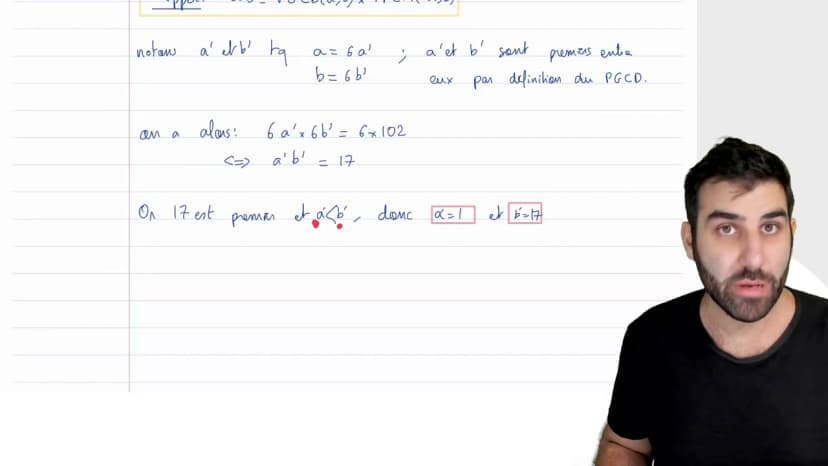 notons a' et b' tq a = 6a' ; a' et b' sont premiers entre
b = 6b' eux par définition du PGCD.
on a alors : 6a' × 6b' = 6 × 102
<=> a'b' = 17
Or 17 est premier et a' < b', donc a' = 1 et b' = 17